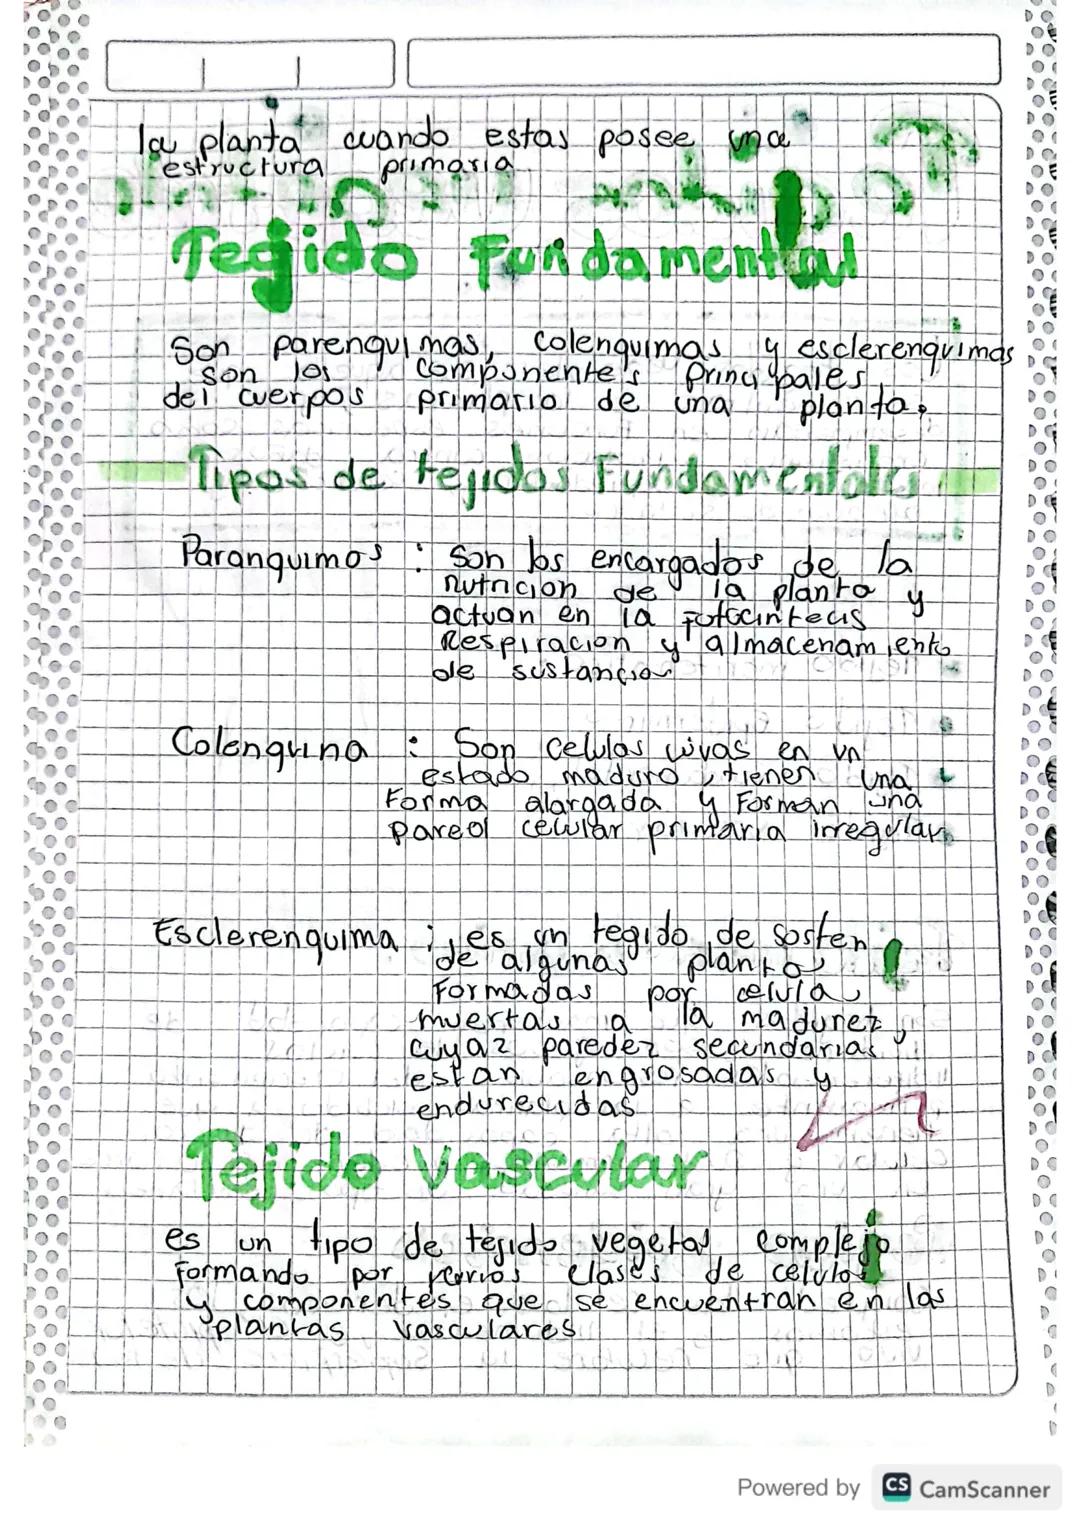 la planta cuando estas posee una
estructura primaria
Tegido Fundamental
Son parenquimas, colenquimas y esclerenquimas
son los componentes principales
del cuerpos primario de una planta.
Tipos de tejidos Fundamentales
Paranquimos : Son los encargados de la
nutricion de la planta y
actuan en la Fotocintecis
Respiracion y almacenamiento
de sustancias
Colenquina : Son celulas vivas en un
estado maduro, tienen una
Forma alargada y Forman una
pared celular primaria irregular.
Esclerenquima : es un tegido de sosten
de algunas plantas
Formadas por celulas
muertas a la madurez,
cuyaz paredez secundarias
estan engrosadas y
endurecidas
Tejido vascular
es un tipo de tejido vegetal complejo
formando por varios clases de celulas
y componentes que se encuentran en las
plantas vasculares
Powered by CS CamScanner